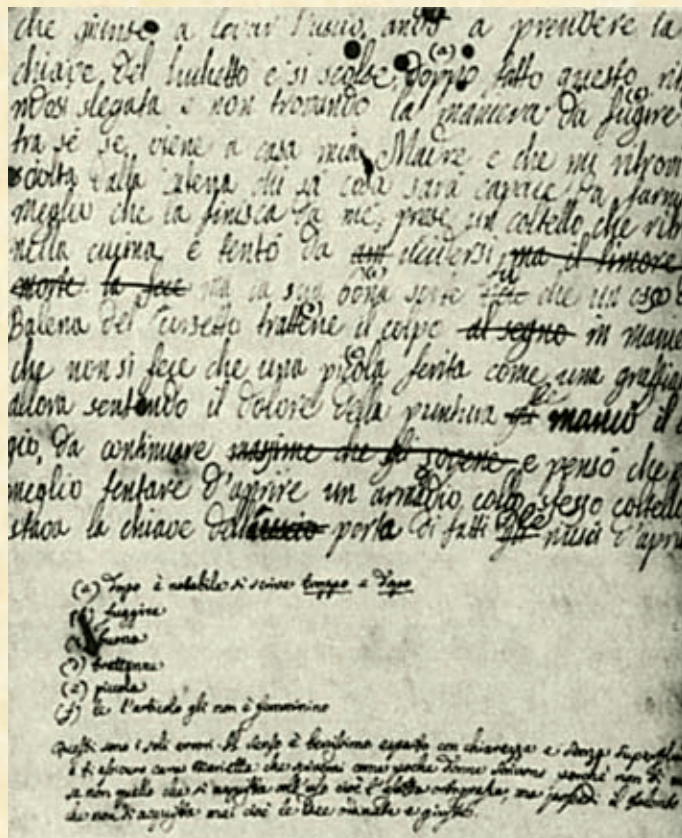 che giunse a levar l'uscio, andò a prendere la
chiave del luchetto e si sciolse, doppo fatto questo, rit
ndosi slegata e non trovando la maniera da fugire
tra sé se viene a casa mia Madre e che mi ritrov
sciolta dalla catena chi sa cosa sarà capace da farmi
meglio che la finisca da me, prese un coltello che rit
nella cucina e tentò da uccidersi ma il timore
morte la fece ma la sua bona sorte fu che un osso
Balena del Corsetto trattene il colpo al segno in manie
che non si fece che una picola ferita come una graffia
allora sentendo il dolore della puntura le mancò il
gio, da continuare e pensò che
meglio tentare d'aprire un armadio collo stesso coltello
stava la chiave dell'uscio porta di fatti le riuscì d'apri
(a) Dopo è notabile si scrive troppo e dopo
fuggire
buona
trattenne
(e) piccola
(f) le l'articolo gli non è femminino
Questi sono i soli errori. Il senso è benissimo esposto con chiarezza e senza superflui
e ti assicuro cara Marietta che scrivi come poche donne scrivono, perché non ti m
se non quello che si acquista coll'uso cioè l'esatta ortografia, ma possiedi il talento
che non si acquista mai cioè le idee ordinate e giuste.